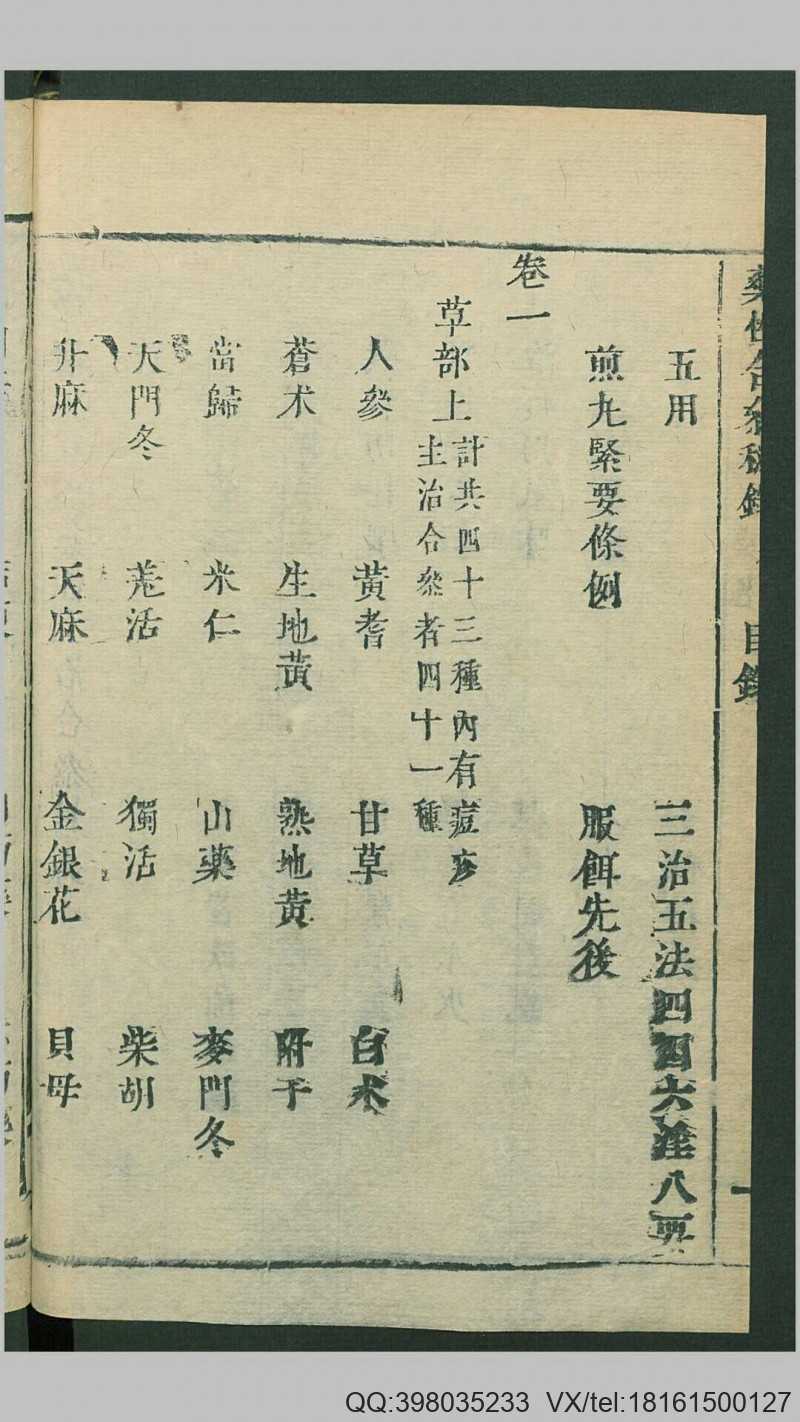 目錄
五用
三治五法四因六淫八要
煎丸緊要條例
服餌先後
卷一
草部上
計共四十三種內有痘疹
主治合參者四十一種
人參
黃耆
甘草
白朮
蒼朮
生地黃
熟地黃
附子
當歸
米仁
山藥
麥門冬
天門冬
羌活
獨活
柴胡
升麻
天麻
金銀花
貝母
QQ:398035233 VX/tel:18161500127